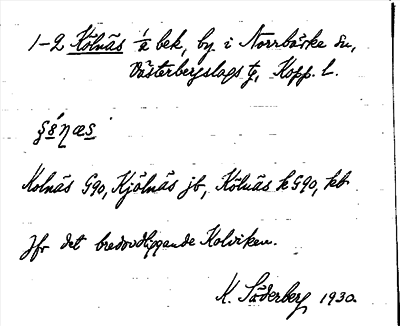 1-2 Kölnäs 1/2 bek, by i Norrbärke sn,
Västerbergslags tg, Kopp. l.
Kolnäs G90, Kjölnäs jb, Kölnäs kG90, kb
Jfr det bredvidliggande Kolviken.
K. Söderberg 1930